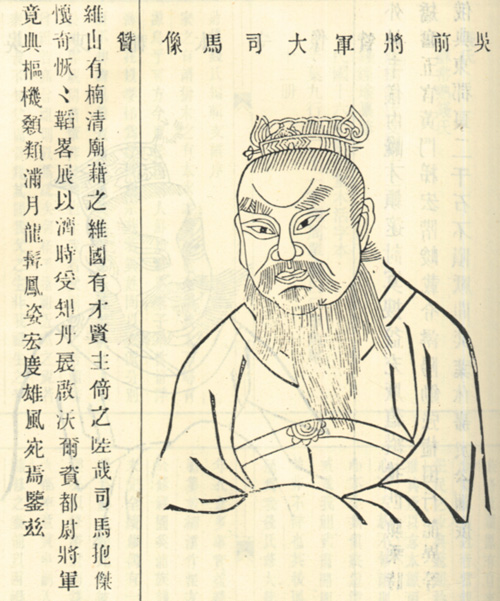 吳前將軍大司馬像贊
維山有楠清廟藉之維國有才賢主倚之哉司馬抱傑
懷奇恢〻韜畧展以濟時受知丹扆啟沃爾資都尉將軍
竟典樞機顙類滿月龍髯鳳姿宏度雄風宛焉鑒茲